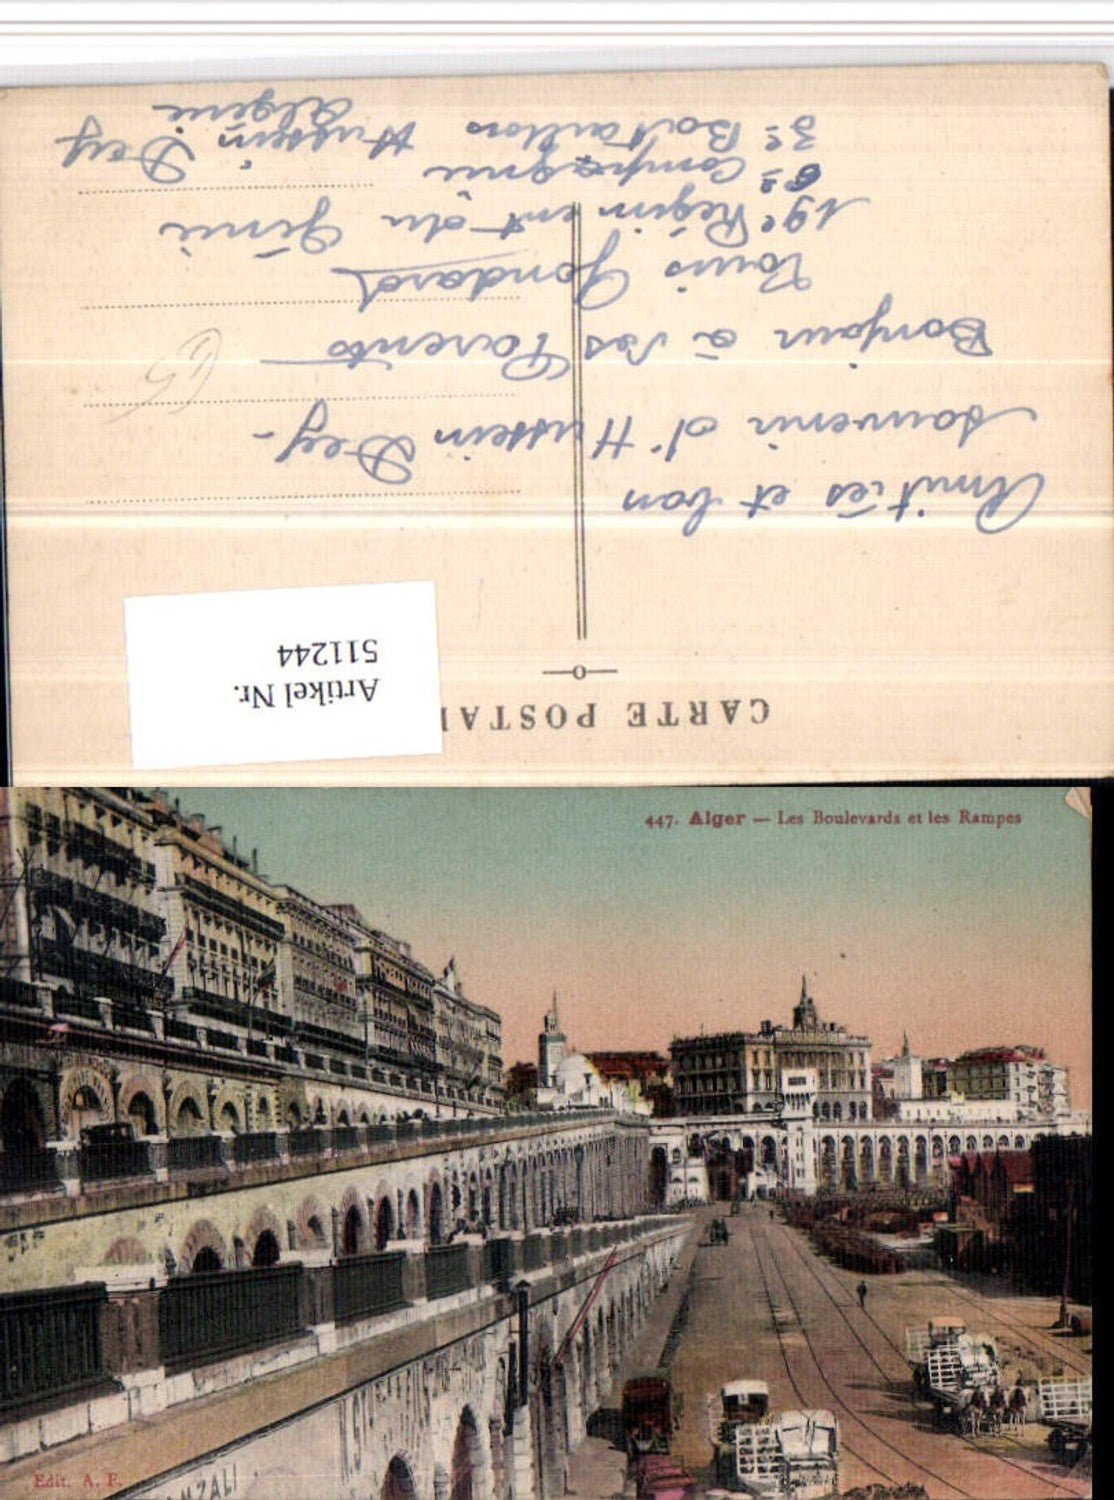 CARTE POSTAL
Artikel Nr.
511244
Amitiés et bon
souvenir d'Hussein Dey-
Bonjour à ses Parents
Louis Gondard
19e Régiment du Génie
6e Compagnie
3e Bataillon Hussein Dey
Algérie
447. Alger — Les Boulevards et les Rampes
Edit. A. F.